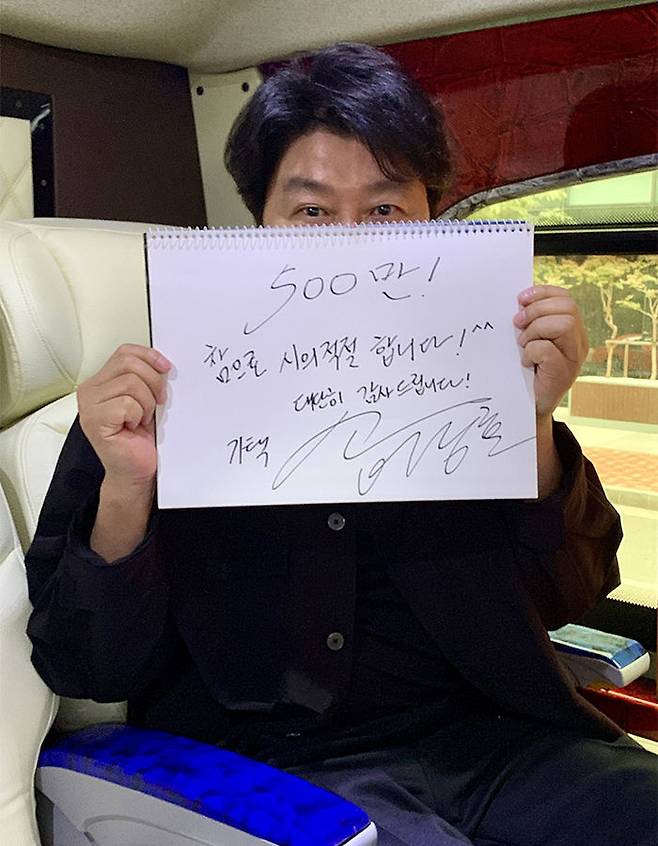 500만!
참으로 시의적절 합니다!^^
대단히 감사드립니다!
기택